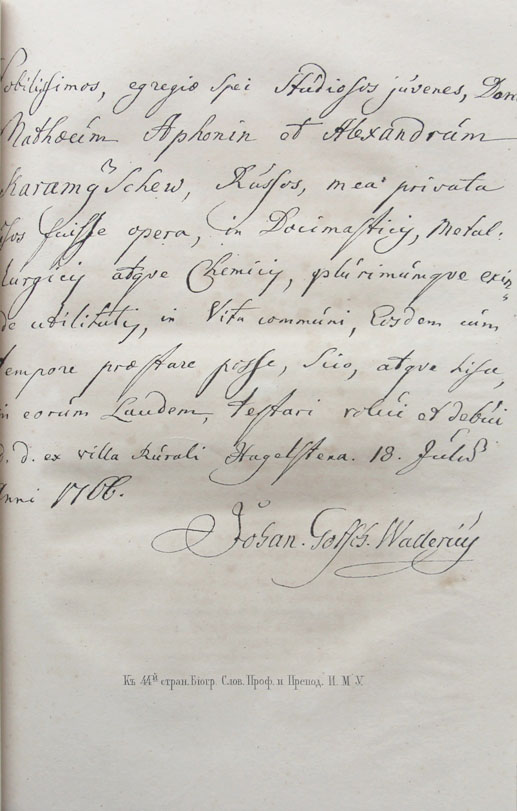 Nobilissimos, egregiæ spei Stúdiosos júvenes, Dom
Mathæúm Aphonin et Alexandrúm
Karamyschew, Rússos, mea privata
úsos fuisse opera, in Docimasticis, Metal-
lúrgicis atqve Chemicis, plúrimúmqve exin=
de utilitatis, in Vita commúni, Eisdem cúm
tempore præstare posse, Scio, atqve hisce,
in eorúm Laudem, testari volúi et debúi
d. d. ex villa Rúrali Hagelstena. 18. Júlii
Anni 1766.
Johan. Gottsch. Wallerius
Къ 44й стран. Біогр. Слов. Проф. и Препод. И. М. У.